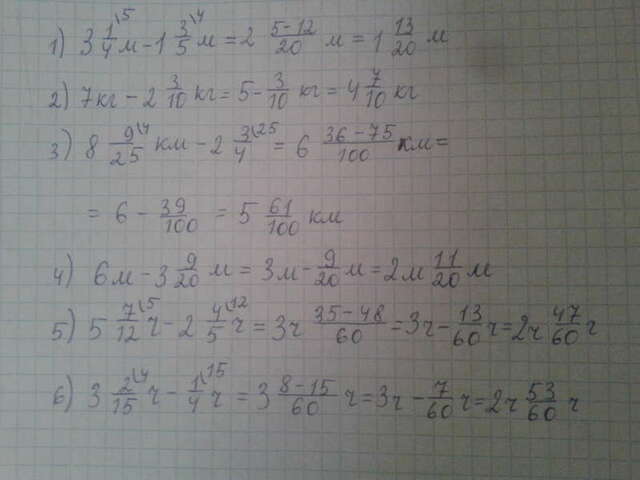 1) 3 1/4\5 м - 1 3/5\4 м = 2 5-12/20 м = 1 13/20 м
2) 7кг - 2 3/10 кг = 5 - 3/10 кг = 4 7/10 кг
3) 8 9/25\4 км - 2 3/4\25 = 6 36-75/100 км =
= 6 - 39/100 = 5 61/100 км
4) 6м - 3 9/20 м = 3м - 9/20 м = 2м 11/20 м
5) 5 7/12\5 ч - 2 4/5\12 ч = 3ч 35-48/60 = 3ч - 13/60 ч = 2ч 47/60 ч
6) 3 2/15\4 ч - 1/4\15 ч = 3 8-15/60 ч = 3ч - 7/60 ч = 2ч 53/60 ч